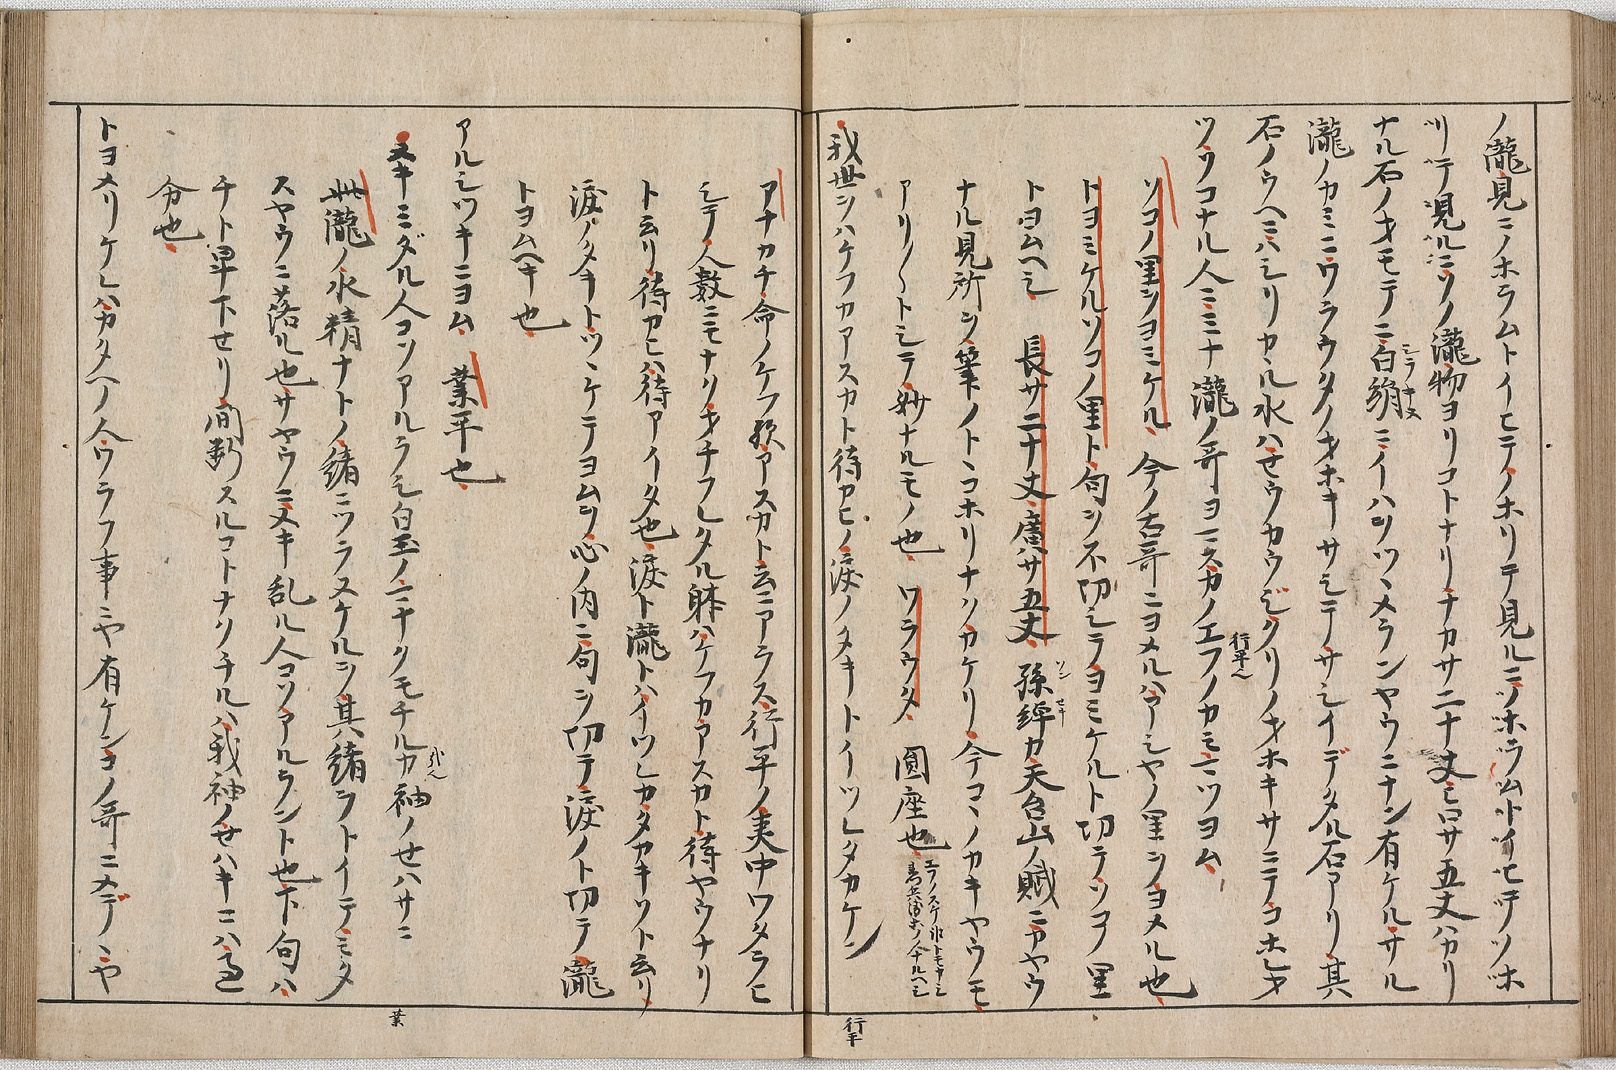 ノ瀧見ニノホラムトイヒテノホリテ見ルニソホラムトイヒテノホ
リテ見ルニソノ瀧物ヨリコトナリナカサ二十丈ヒロサ五丈ハカリ
ナル石ノオモテニ白絹ニイハヲツヽメランヤウニナン有ケルサル
シラキヌ
瀧ノカミニワラウタノオホキサシテサシイデタル石アリ其
石ノウヘニハシリカヽル水ハせウカウジクリノオホキサニテコホレオ
ツソコナル人ニミナ瀧ノ哥ヨマスカノエフノカミマツヨム
行平ヘ
ソコノ里ヲヨミケル 今ノ古哥ニヨメルハアシヤノ里ヲヨメル也
トヨミケルソコノ里ト句ヲ不切シテヨミケルト切テソコノ里
トヨムヘシ 長サ二十丈廣サ五丈 孫綽カ天台山ノ賦ニカヤウ
ソン
ナル見所ヲ筆ノトヽコホリナソカケリ今コヽノカキヤウモ
アリ〱トミテ妙ナルモノ也 ワラウタ 圓座也
我世ヲハケフカアスカト待カヒノ涙ノタキトイツレタカケン
行平
アナカチ命ノケフ歟アスカト云ニアラス行平ノ夷中ワタラヒ
シテ人数ニモナリオチフレタル躰ハケフカアスカト待ヤウナリ
ト云リ待カヒハ待アイタ也涙ト瀧トハイツレカタカキソト云リ
涙ノタキトツヽケテヨムヲ心ノ内ニ句ヲ切テ涙ノト切テ瀧
トヨムヘキ也
アルシツキニヨム 業平也
ヌキミダル人コソアルラシ白玉ノマナクモチルカ袖ノせハサニ
業
此瀧ノ水精ナトノ緒ニツラヌケルヲ其緒ヲトイテミタ
スヤウニ落ル也サヤウニヌキ乱ル人コソアルラント也下句ハ
チト卑下せリ間断スルコトナソチルハ我袖ノせハキニハ過
分也
トヨメリケレハカタヘノ人ワラフ事ニヤ有ケンコノ哥ニメデヽヤ